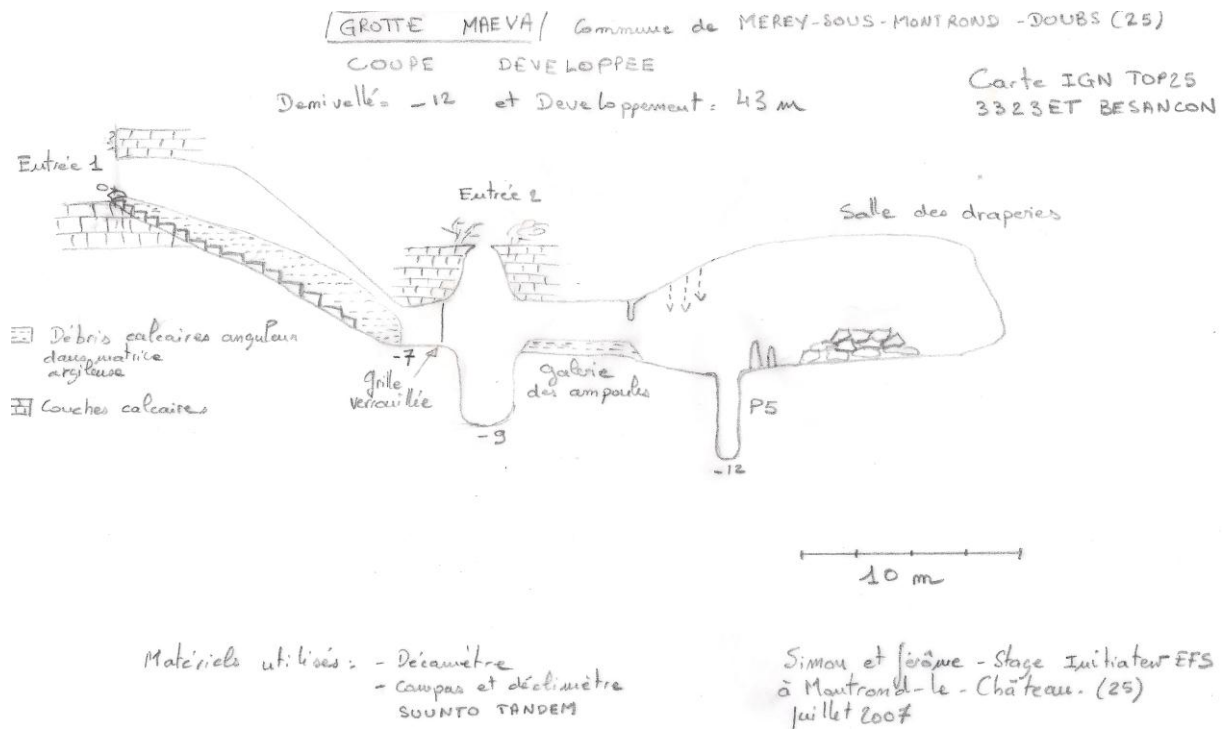 GROTTE MAEVA / Commune de MEREY-SOUS-MONTROND -DOUBS (25)
COUPE DEVELOPPEE
Denivellé= -12 et Developpement: 43 m
Carte IGN TOP25
3323ET BESANCON
Entrée 1
0
Entrée 2
Salle des draperies
Débris calcaires anguleux
dans matrice
argileuse
Couches calcaires
-7
Grille
verrouillée
-9
Galerie
des ampoules
P5
-12
10 m
Matériels utilisés: - Décamètre
- Compas et déclimètre
SUUNTO TANDEM
Simon et Jérôme - Stage Initiateur EFS
à Montrond-le-Château. (25)
Juillet 2007